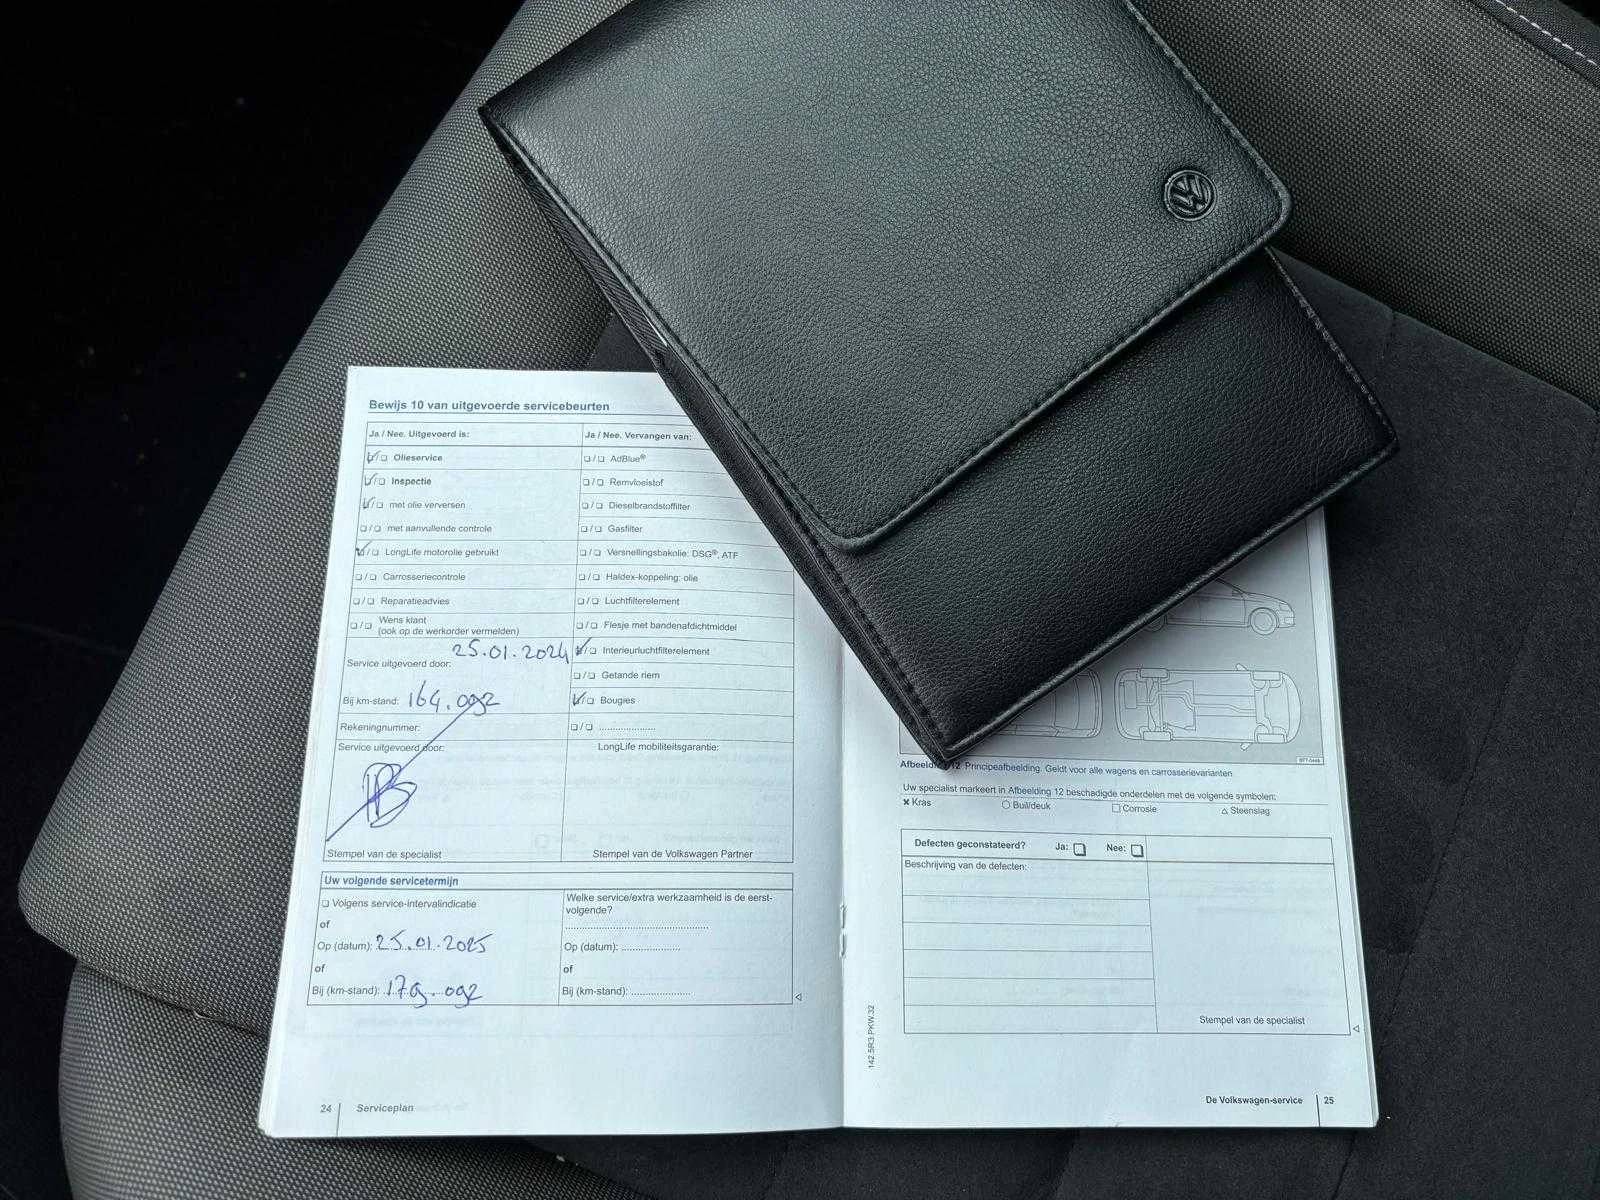 Bewijs 10 van uitgevoerde servicebeurten
Ja / Nee. Uitgevoerd is:
Olieservice
Inspectie
met olie verversen
met aanvullende controle
LongLife motorolie gebruikt
Carrosseriecontrole
Reparatieadvies
Wens klant
(ook op de werkorder vermelden)
25.01.2024
Service uitgevoerd door:
Bij km-stand: 164.092
Rekeningnummer:
Service uitgevoerd door:
Stempel van de specialist
Ja / Nee. Vervangen van:
AdBlue®
Remvloeistof
Dieselbrandstoffilter
Gasfilter
Versnellingsbakolie: DSG®, ATF
Haldex-koppeling: olie
Luchtfilterelement
Flesje met bandenafdichtmiddel
Interieurluchtfilterelement
Getande riem
Bougies
LongLife mobiliteitsgarantie:
Stempel van de Volkswagen Partner
Uw volgende servicetermijn
Volgens service-intervalindicatie
of
Op (datum): 25.01.2025
of
Bij (km-stand): 179.092
Welke service/extra werkzaamheid is de eerst-
volgende?
Op (datum):
of
Bij (km-stand):
24 Serviceplan
12 Principeafbeelding. Geldt voor alle wagens en carrosserievarianten
Uw specialist markeert in Afbeelding 12 beschadigde onderdelen met de volgende symbolen:
Kras
Buil/deuk
Corrosie
Steenslag
Defecten geconstateerd? Ja: Nee:
Beschrijving van de defecten:
Stempel van de specialist
142.5R3.PKW.32
De Volkswagen-service 25